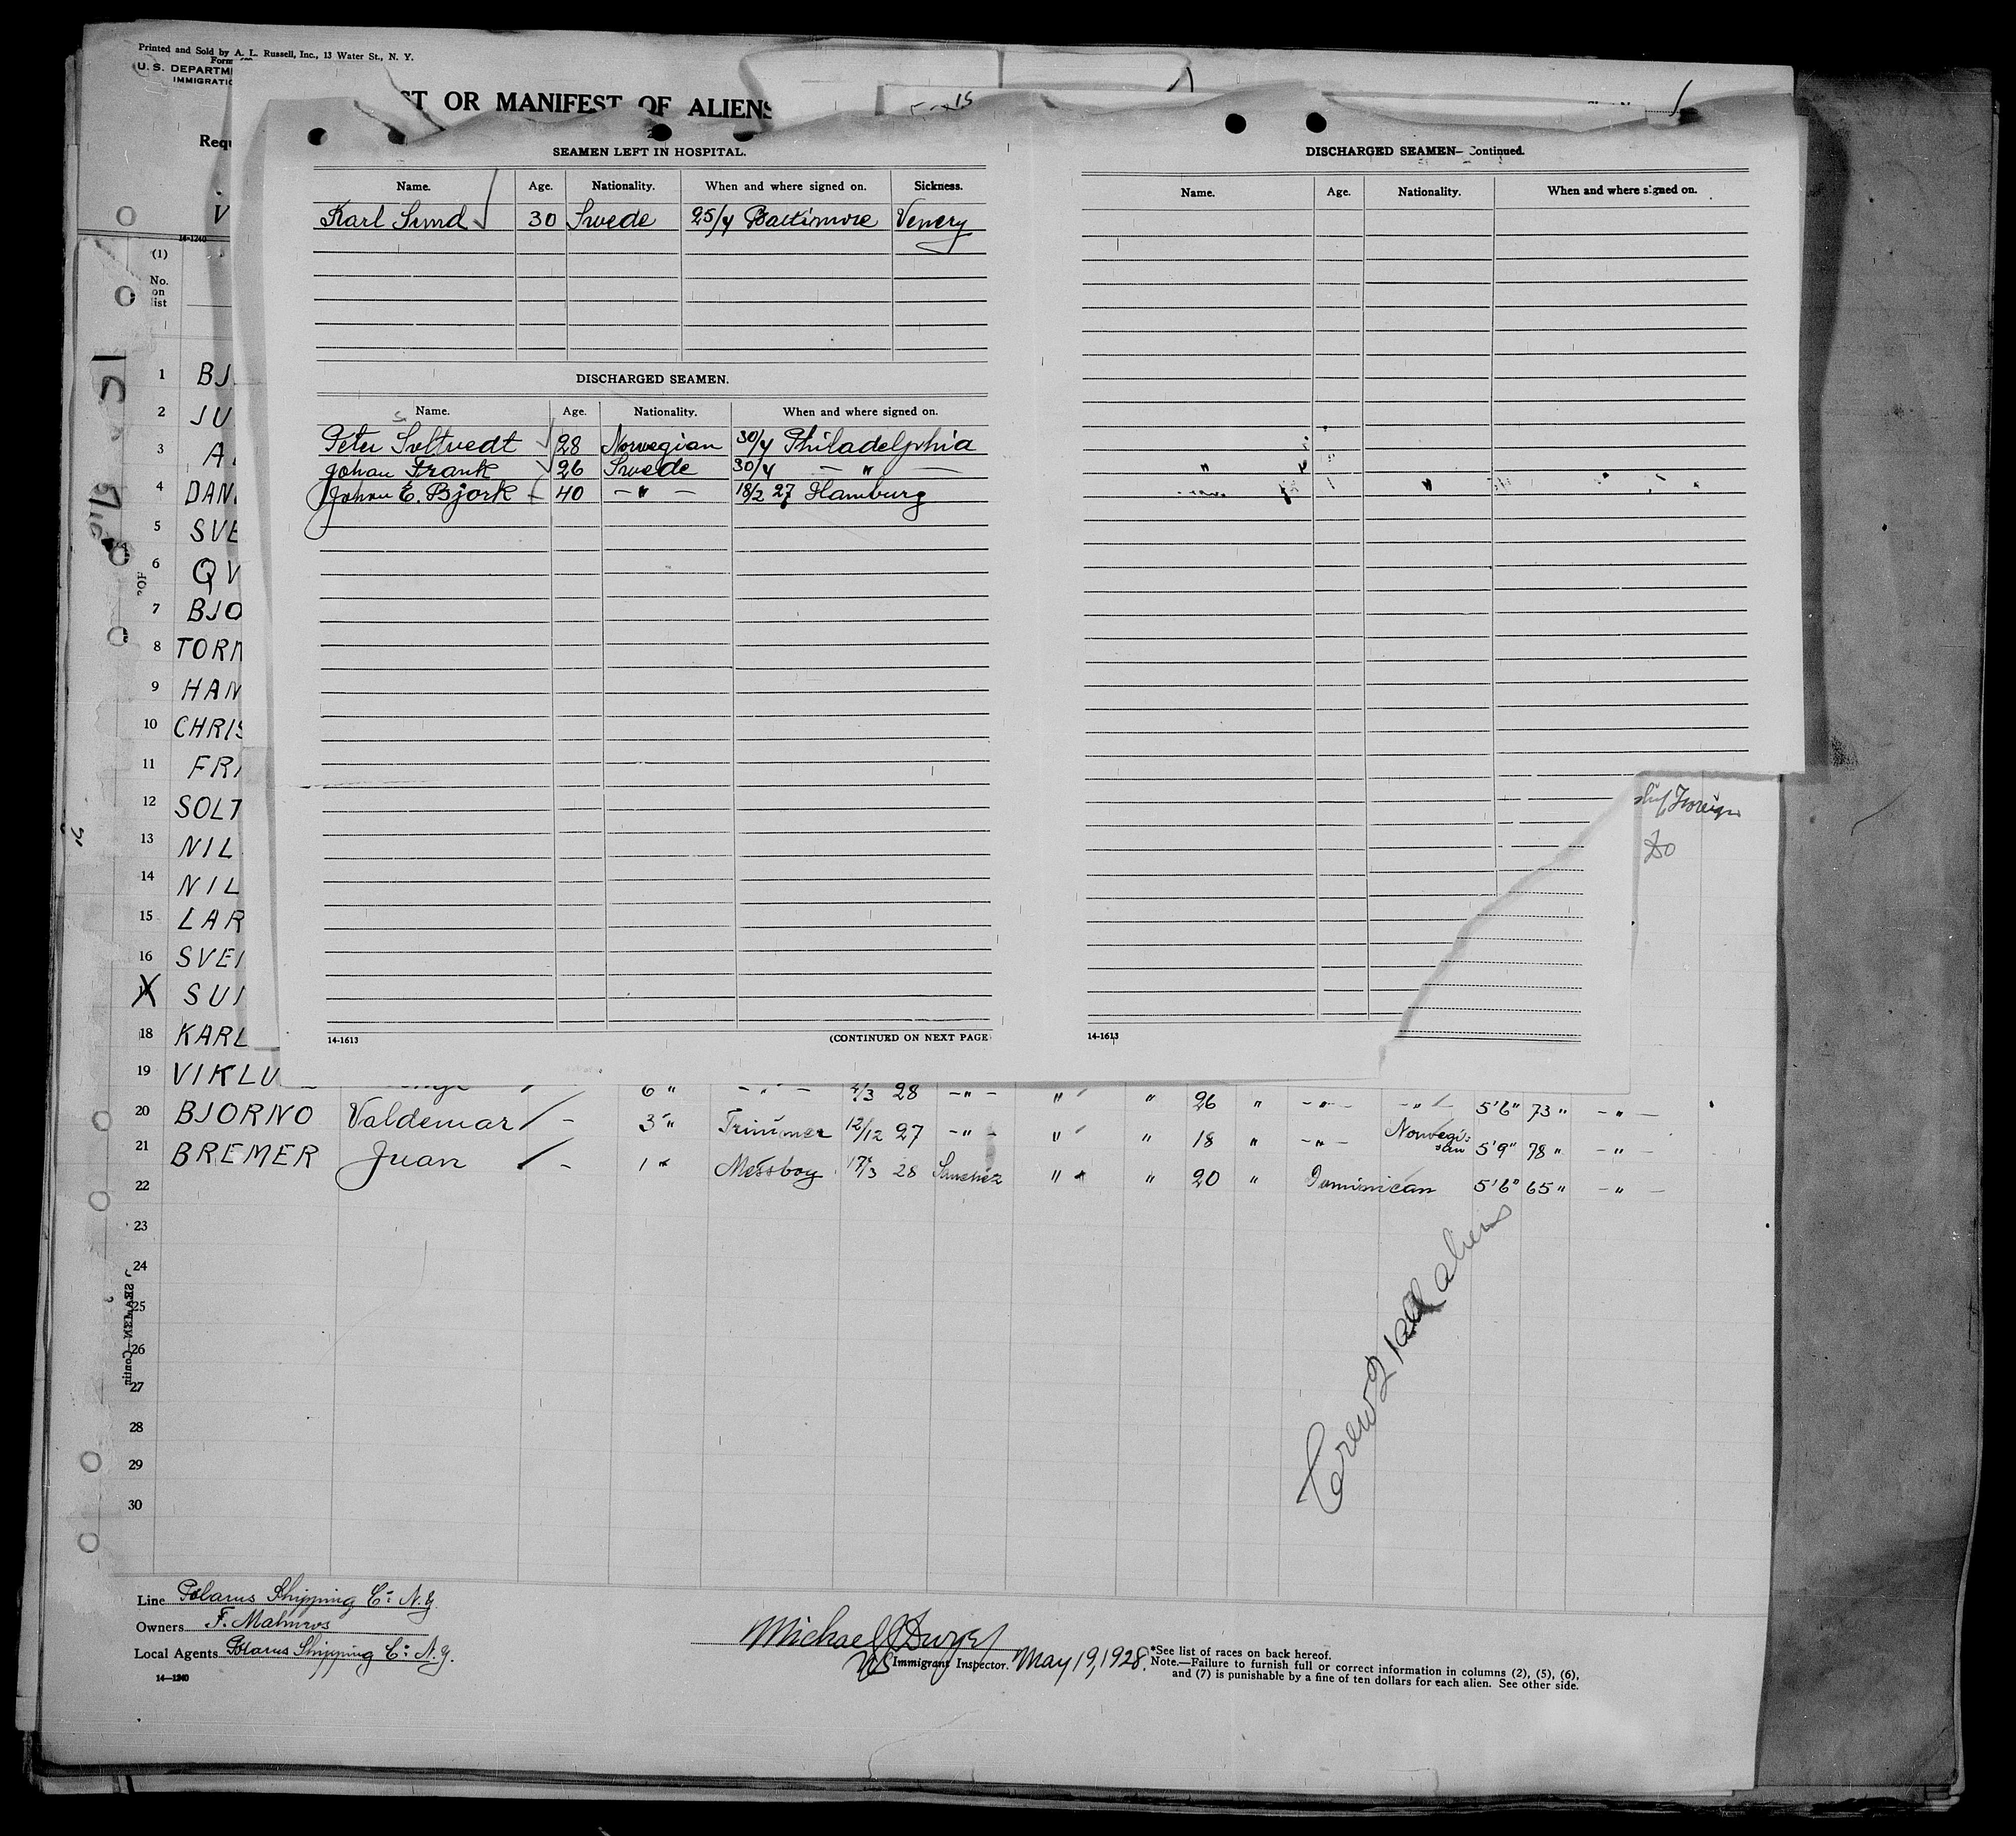 Printed and Sold by A. L. Russell, Inc., 13 Water St., N. Y.
Form
U. S. DEPARTM
IMMIGRATIO
ST OR MANIFEST OF ALIENS
15
Requ
V
14-1240
SEAMEN LEFT IN HOSPITAL.
Name. Age. Nationality. When and where signed on. Sickness.
Karl Sund 30 Swede 25/4 Baltimore Venery
DISCHARGED SEAMEN.
Name. Age. Nationality. When and where signed on.
Peter Seltvedt 28 Norwegian 30/4 Philadelphia
Johan Frank 26 Swede 30/4 — " —
Johan E. Bjork 40 — " — 18/2 27 Hamburg
14-1613 (CONTINUED ON NEXT PAGE
DISCHARGED SEAMEN—Continued.
Name. Age. Nationality. When and where signed on.
14-1613
Foreign
Do
(1)
No.
on
list
1 BJ
2 JU
3 A
4 DAN
5 SVE
6 QV
7 BJO
8 TORM
9 HAN
10 CHRIS
11 FRI
12 SOLT
13 NIL
14 NIL
15 LAR
16 SVEN
X SUN
18 KARL
19 VIKLU 6 " — " — 2/3 28 — " — " " 26 " — " — — " — 5'6" 73 " — " —
20 BJORNO Valdemar — 3 " Trimmer 12/12 27 — " — " " 18 " — " — Norwegian 5'9" 78 " — " —
21 BREMER Juan — 1 " Messboy 17/3 28 Sanchez " " 20 " Dominican 5'6" 65 " — " —
22
23
24
25
26
27
28
29
30
SEAMEN—Contin
Crew 21 all aliens
Line Polarus Shipping Co. N.Y.
Owners F. Malmros
Local Agents Polarus Shipping Co. N.Y.
14—1240
Michael J Dwyer
US Immigrant Inspector. May 19, 1928.
*See list of races on back hereof.
Note.—Failure to furnish full or correct information in columns (2), (5), (6),
and (7) is punishable by a fine of ten dollars for each alien. See other side.